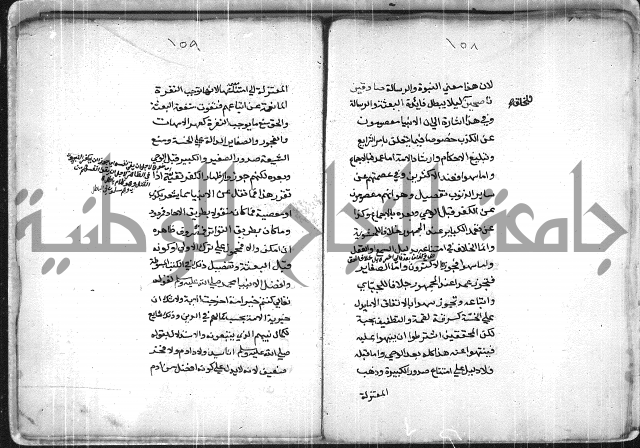 ١٥٨
لان هذا معنى النبوة والرسالة صادقين
ناصحين لئلا يبطل فائدة البعثة والرسالة
للخلق
وفي هذا اشارة الى ان الانبيا معصومون
عن الكذب خصوصا فيما يتعلق بامر الشرايع
وتبليغ الاحكام وارشاد الامة اما عمدا فبالاجماع
واما سهوا فعند الاكثرين وفي عصمتهم عن
ساير الذنوب تفصيل وهو انهم معصومون
عن الكفر قبل الوحي وبعده بالاجماع وكذا
عن تعمد الكباير عند الجمهور خلافا للحشوية
وانما الخلاف في امتناعه بدليل السمع او العقل
واما سهوا فجوزه الاكثرون واما الصغاير
فتجوز عمدا عند الجمهور خلافا للجبائي
واتباعه وتجوز سهوا بالاتفاق الا ما يدل
على الخسة كسرقة لقمة والتطفيف بحبة
لكن المحققين اشترطوا ان ينبهوا عليه
فينتهوا عنه هذا كله بعد الوحي واما قبله
فلا دليل على امتناع صدور الكبيرة وذهب
المعتزلة
١٥٩
المعتزلة الى امتناعها لانها توجب النفرة
المانعة عن اتباعهم فتفوت مصلحة البعثة
والحق منع ما يوجب النفرة كعهر الامهات
والفجور والصغاير الدالة على الخسة ومنع
الشيعة صدور الصغيرة والكبيرة قبل الوحي
وبعده لكنهم جوزوا اظهار الكفر تقية اذا
تقرر هذا فما نقل عن الانبيا مما يشعر بكذب
او معصية فما كان منقولا بطريق الاحاد فمردود
وما كان بطريق التواتر فمصروف عن ظاهره
ان امكن والا فمحمول على ترك الاولى او كونه
قبل البعثة وتفصيل ذلك في الكتب المبسوطة
وافضل الانبيا محمد صلى الله عليه وسلم لقوله
تعالى كنتم خير امة اخرجت الاية ولا شك ان
خيرية الامة بحسب كمالهم في الدين وذلك تابع
لكمال نبيهم الذي يتبعونه والاستدلال بقوله
صلى الله عليه وسلم انا سيد ولد ادم ولا فخر
ضعيف لانه لا يدل على كونه افضل من ادم
جامعة النجاح الوطنية